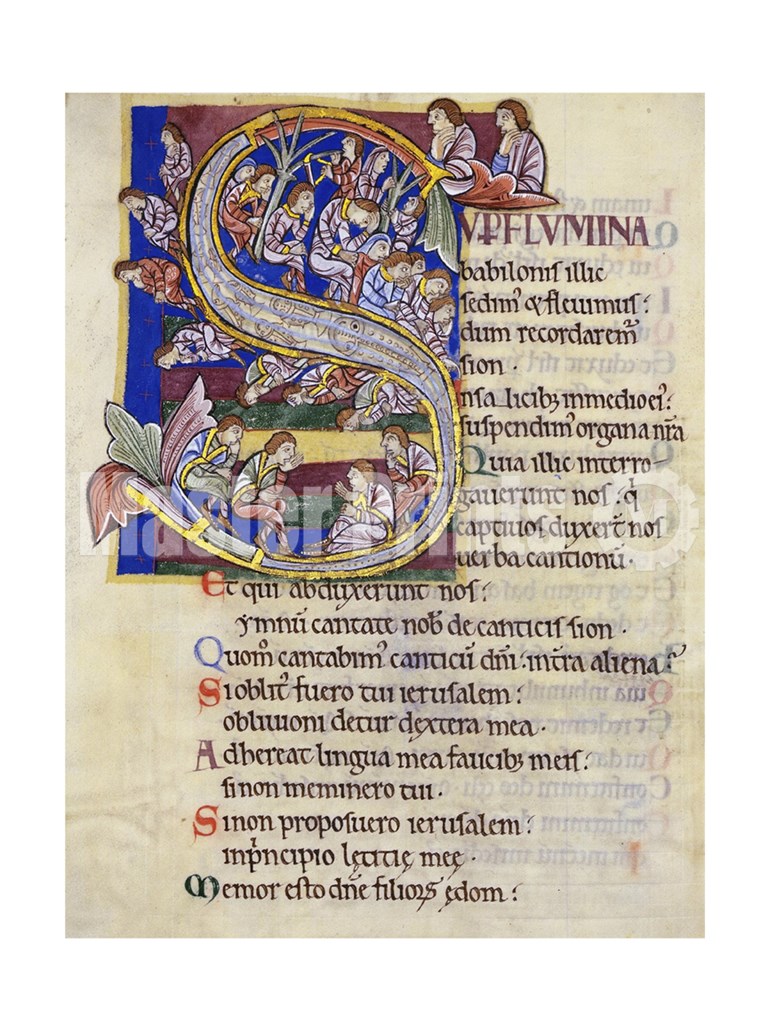 SUP FLUMINA
babilonis illic
sedim᾽ & fleuimus:
dum recordarem̄
sion .
Insalicib; inmedio ei᾽:
suspendim᾽ organa nr̄a
Quia illic interro
gauerunt nos : q̇
captiuos duxer̄t nos
uerba cantionū .
Et qui abduxerunt nos :
ymnū cantate nob̄ de canticis sion .
Quom̄ cantabim᾽ canticū dn̄i : intr̄a aliena ?
Si oblit᾽ fuero tui ierusalem :
obliuioni detur dextera mea .
Adhereat lingua mea faucib; meis :
si non meminero tui .
Si non proposuero ierusalem :
inp̄ncipio lętitię meę .
Memor esto dn̄e filioꝝ ędom :